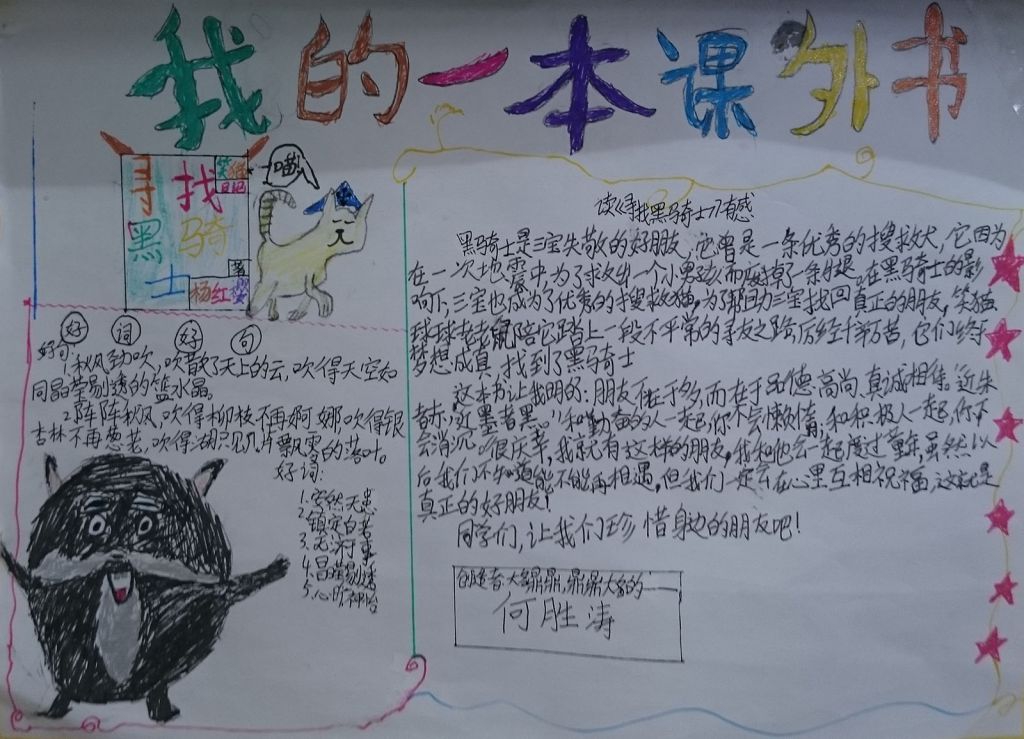 我的一本课外书
寻找
黑骑
士
笑猫
日记
杨红樱
著
喵!
好词好句
好句:
1.秋风劲吹,吹散了天上的云,吹得天空如
同晶莹剔透的篮水晶。
2.阵阵秋风,吹得柳枝不再婀娜吹得银
杏林不再葱茏,吹得湖只见几片飘零的落叶。
好词:
1.安然无恙
2.镇定自若
3.无济于事
4.晶莹剔透
5.心旷神怡
读《寻找黑马骑士》有感
黑骑士是三宝失散的好朋友,它曾是一条优秀的搜救犬,它因为
在一次地震中,为了求出一个小男孩而砸掉了一条腿。在黑马骑士的影
响下,三宝也成为了优秀的搜救猫,为了帮助三宝找回真正的朋友,笑猫
球球老老鼠陪它踏上一段不平常的寻友之路历经千辛万苦,它们终于
梦想成真,找到了黑马骑士
这本书让我明白:朋友不在于多,而在于品德高尚、真诚相待。“近朱
者赤,近墨者黑。”和勤奋的人一起,你不会懒惰,和积极人一起,你不
会消沉。很庆幸,我就有这样的朋友,我和他会一起度过童年,虽然以
后我们不知道能不能再相遇,但我们一定会在心里互相祝福,这就是
真正的好朋友!
同学们,让我们珍惜身边的朋友吧!
创造者:大名鼎鼎,鼎鼎大名的——
何胜涛